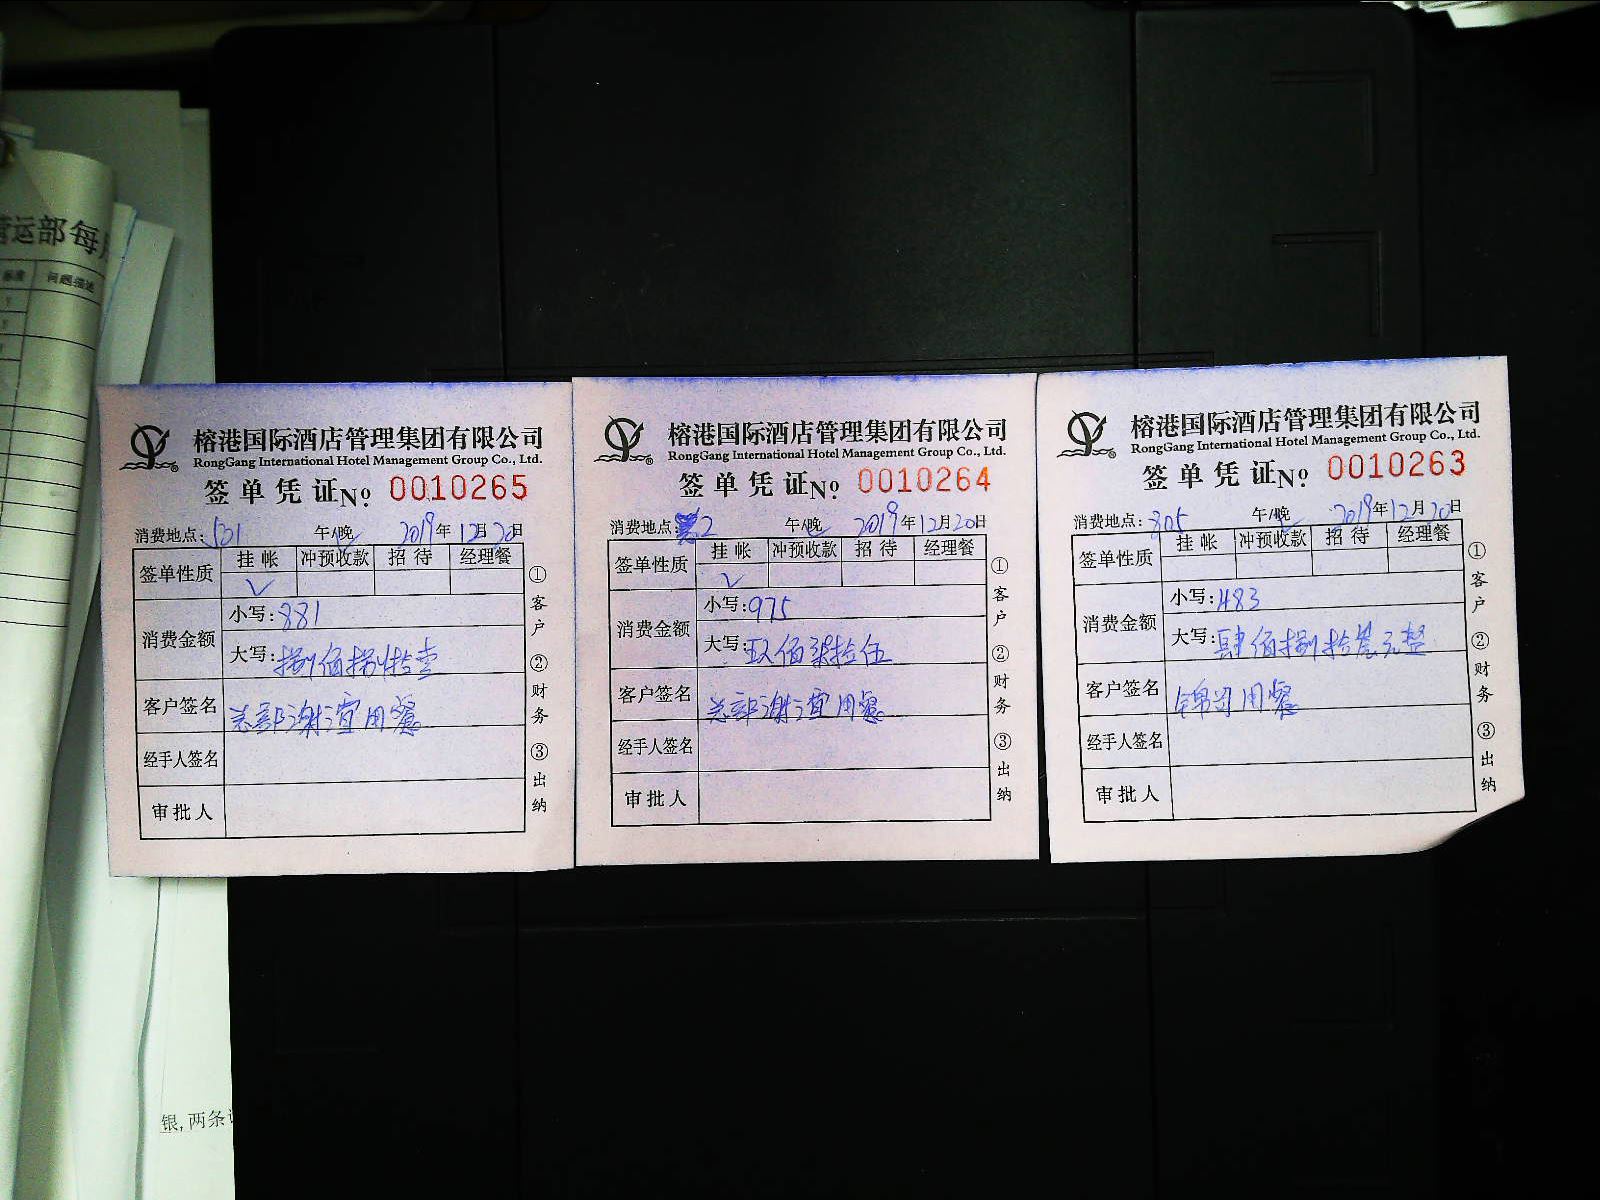 营运部每月
标准 问题描述
榕港国际酒店管理集团有限公司
RongGang International Hotel Management Group Co., Ltd.
签单凭证 No 0010265
消费地点: 531 午/晚 2019年12月20日
签单性质 挂帐 冲预收款 招待 经理餐
✓
消费金额 小写: 881
大写: 捌佰捌拾壹
客户签名 总部谢 用餐
经手人签名
审批人
①客户 ②财务 ③出纳
榕港国际酒店管理集团有限公司
RongGang International Hotel Management Group Co., Ltd.
签单凭证 No 0010264
消费地点: 2 午/晚 2019年12月20日
签单性质 挂帐 冲预收款 招待 经理餐
✓
消费金额 小写: 975
大写: 玖佰柒拾伍
客户签名 总部谢 用餐
经手人签名
审批人
①客户 ②财务 ③出纳
榕港国际酒店管理集团有限公司
RongGang International Hotel Management Group Co., Ltd.
签单凭证 No 0010263
消费地点: 805 午/晚 2019年12月20日
签单性质 挂帐 冲预收款 招待 经理餐
消费金额 小写: 483
大写: 肆佰捌拾叁元整
客户签名 用餐
经手人签名
审批人
①客户 ②财务 ③出纳
银,两条